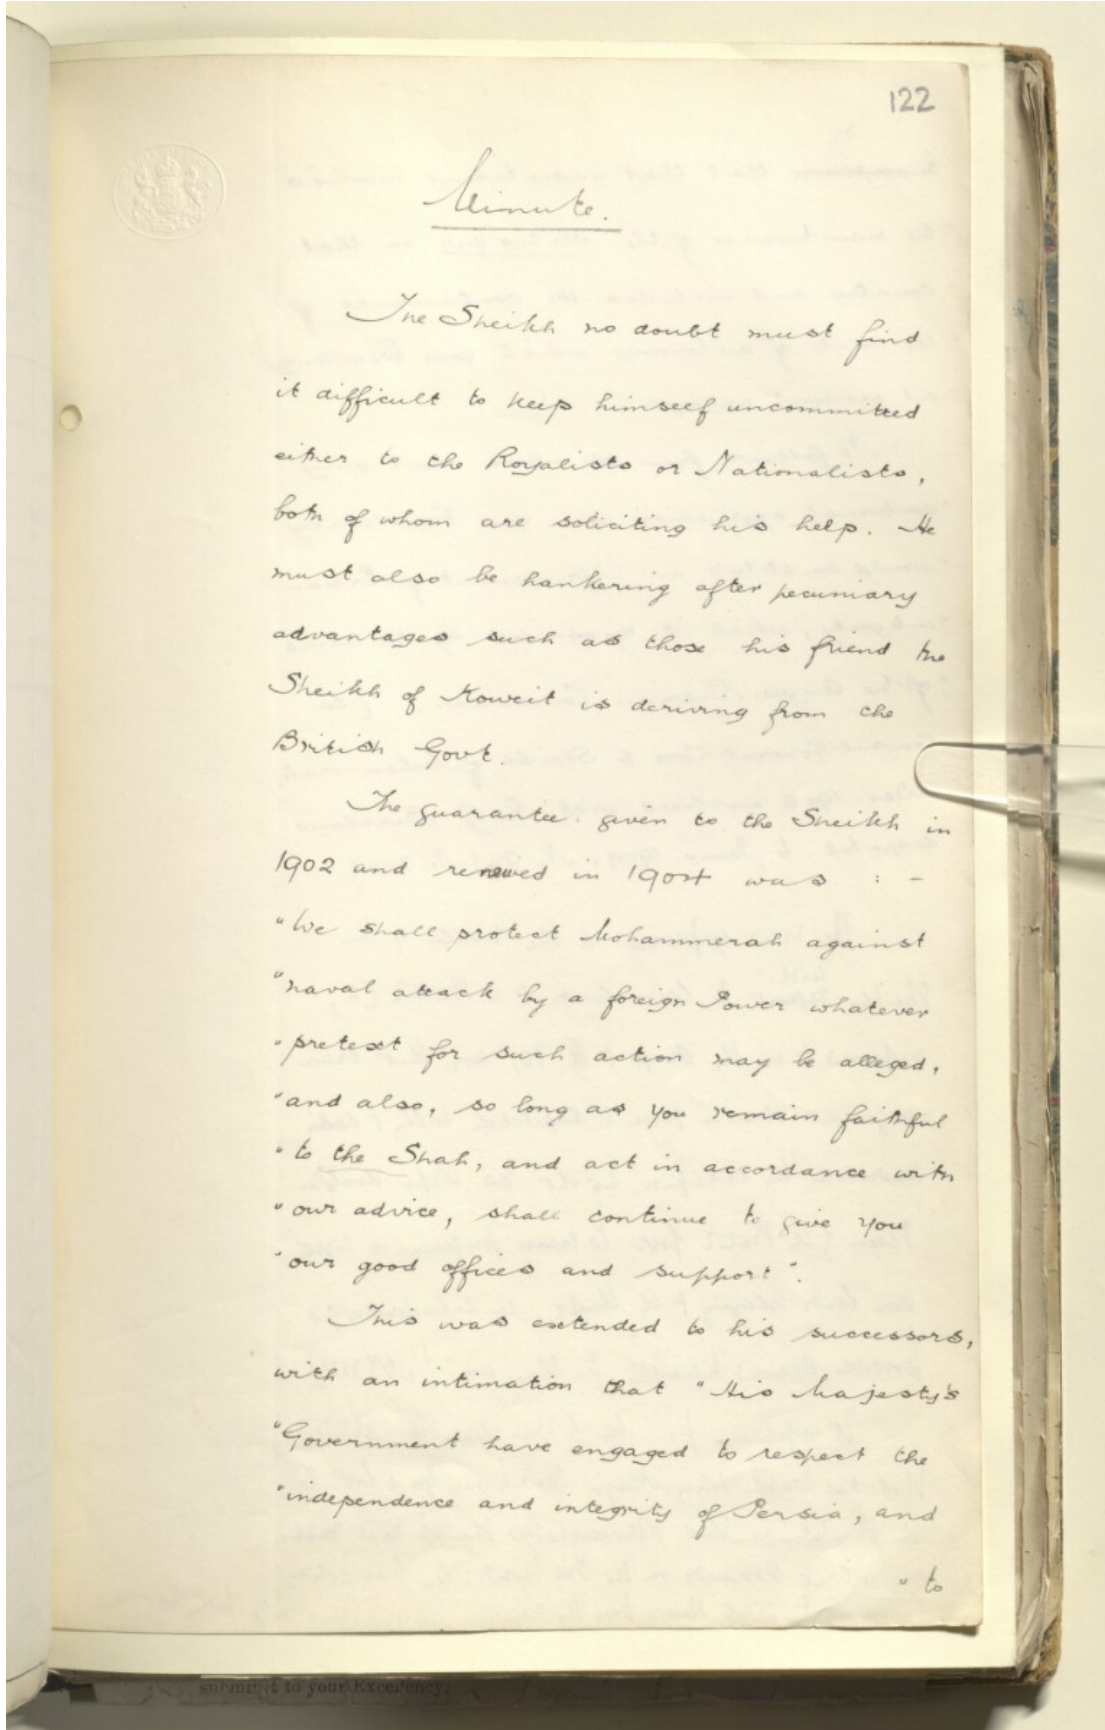 122
Minute.
The Sheikh no doubt must find
it difficult to keep himself uncommitted
either to the Royalists or Nationalists,
both of whom are soliciting his help. He
must also be hankering after pecuniary
advantages such as those his friend the
Sheikh of Koweit is deriving from the
British Govt.
The guarantee given to the Sheikh in
1902 and renewed in 1904 was : -
"We shall protect Mohammerah against
"naval attack by a foreign Power whatever
"pretext for such action may be alleged,
"and also, so long as you remain faithful
"to the Shah, and act in accordance with
"our advice, shall continue to give you
"our good offices and support".
This was extended to his successors,
with an intimation that "His Majesty's
"Government have engaged to respect the
"independence and integrity of Persia, and
"to
submit it to your Excellency,